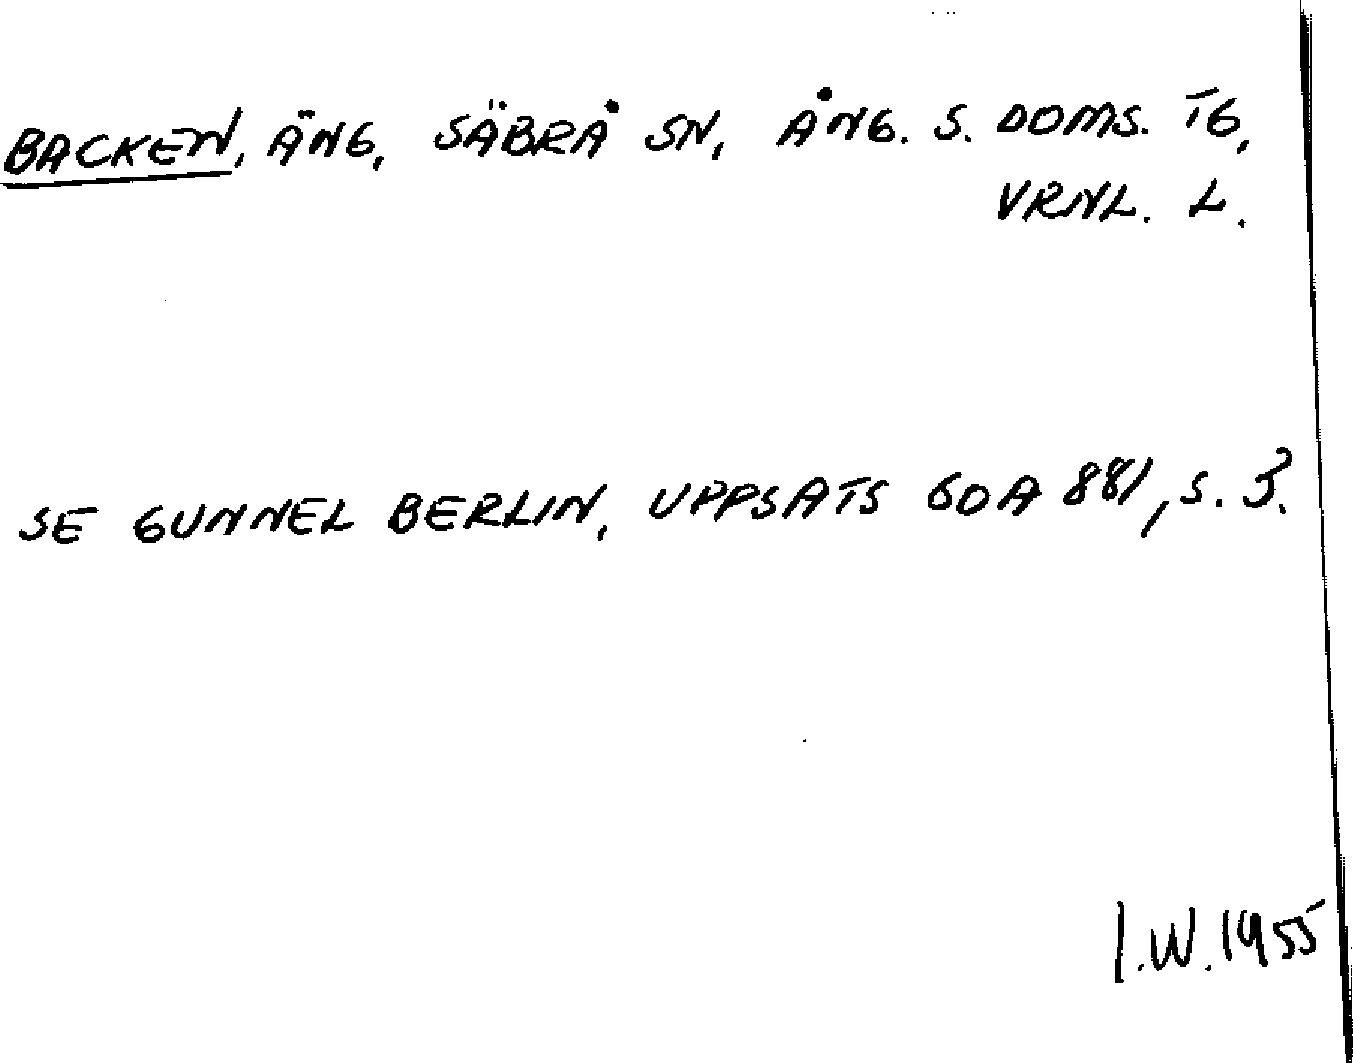 BACKEN, ÄNG, SÄBRÅ SN, ÅNG. S. DOMS. TG,
VRNL. L.
SE GUNNEL BERLIN, UPPSATS GOA 881, S. 3.
I.W. 1955